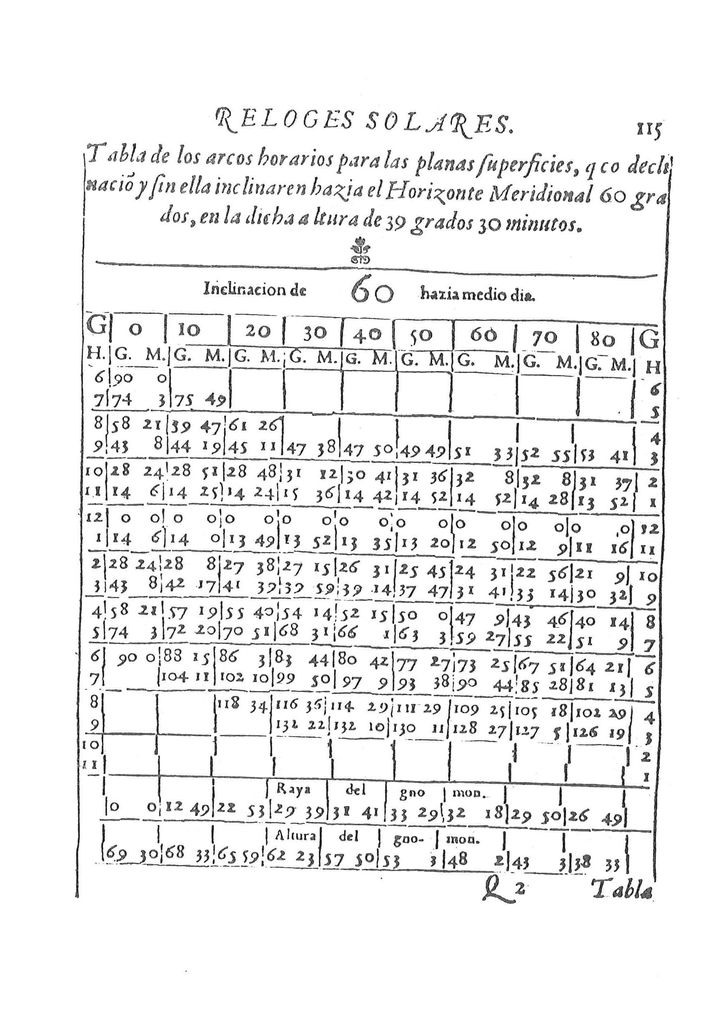 RELOGES SOLARES. 115
Tabla de los arcos horarios para las planas superficies, q cō decli
naciō y sin ella inclinaren hazia el Horizonte Meridional 60 gra
dos, en la dicha altura de 39 grados 30 minutos.
Inclinacion de 60 hazia medio dia.
G 0 10 20 30 40 50 60 70 80 G
H. G. M. G. M. G. M. G. M. G. M. G. M. G. M. G. M. G. M. H
6 90 0 6
7 74 3 75 49 5
8 58 21 39 47 61 26 4
9 43 8 44 19 45 11 47 38 47 50 49 49 51 33 52 55 53 41 3
10 28 24 28 51 28 48 31 12 30 41 31 36 32 8 32 8 31 37 2
11 14 6 14 25 14 24 15 36 14 42 14 52 14 52 14 28 13 52 1
12 0 0 0 0 0 0 0 0 0 0 0 0 0 0 0 0 0 0 12
1 14 6 14 0 13 49 13 52 13 35 13 20 12 50 12 9 11 16 11
2 28 24 28 8 27 38 27 15 26 31 25 45 24 31 22 56 21 9 10
3 43 8 42 17 41 39 39 59 39 14 37 47 31 41 33 14 30 32 9
4 58 21 57 19 55 40 54 14 52 15 50 0 47 9 43 46 40 14 8
5 74 3 72 20 70 51 68 31 66 1 63 3 59 27 55 22 51 9 7
6 90 0 88 15 86 3 83 44 80 42 77 27 73 25 67 51 64 21 6
7 104 11 102 10 99 50 97 9 93 38 90 44 85 28 81 13 5
8 118 34 116 36 114 29 111 29 109 25 105 18 102 29 4
9 132 22 132 10 130 11 128 27 127 5 126 19 3
10 2
11 1
Raya del gno mon.
0 0 12 49 22 53 29 39 31 41 33 29 32 18 29 50 26 49
Altura del gno- mon.
69 30 68 33 65 59 62 23 57 50 53 3 48 2 43 3 38 33
Q 2 Tabla